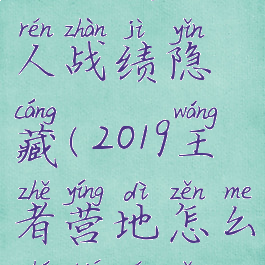 rén zhàn jì yǐn
人战绩隐
cáng wáng
藏(2019王
zhě yíng dì zěn me
者营地怎么